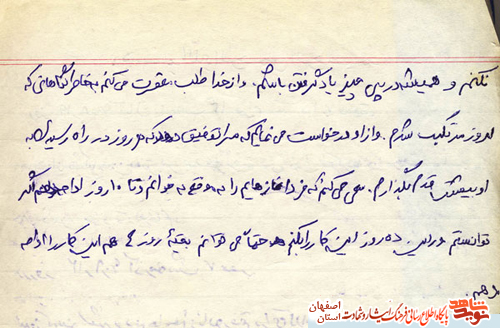 نکنم و همیشه در پی چیز یاد گرفتن باشم. و از خدا طلب مغفرت می‌کنم به خاطر گناهانی که
امروز مرتکب شدم. و از او درخواست می‌نمایم که مرا توفیق دهد که هر روز در راه رسیدن به
او بیشتر قدم بگذارم. سعی می‌کنم که فردا نمازهایم را به موقع بخوانم و تا ۱۰ روز ادامه دهم اگر
توانستم در این ده روز این کار را بکنم حتماً می‌توانم بقیه روزها هم این کار را ادامه
دهم.
نوید شاهد
پایگاه اطلاع رسانی فرهنگ ایثار و شهادت
استان اصفهان